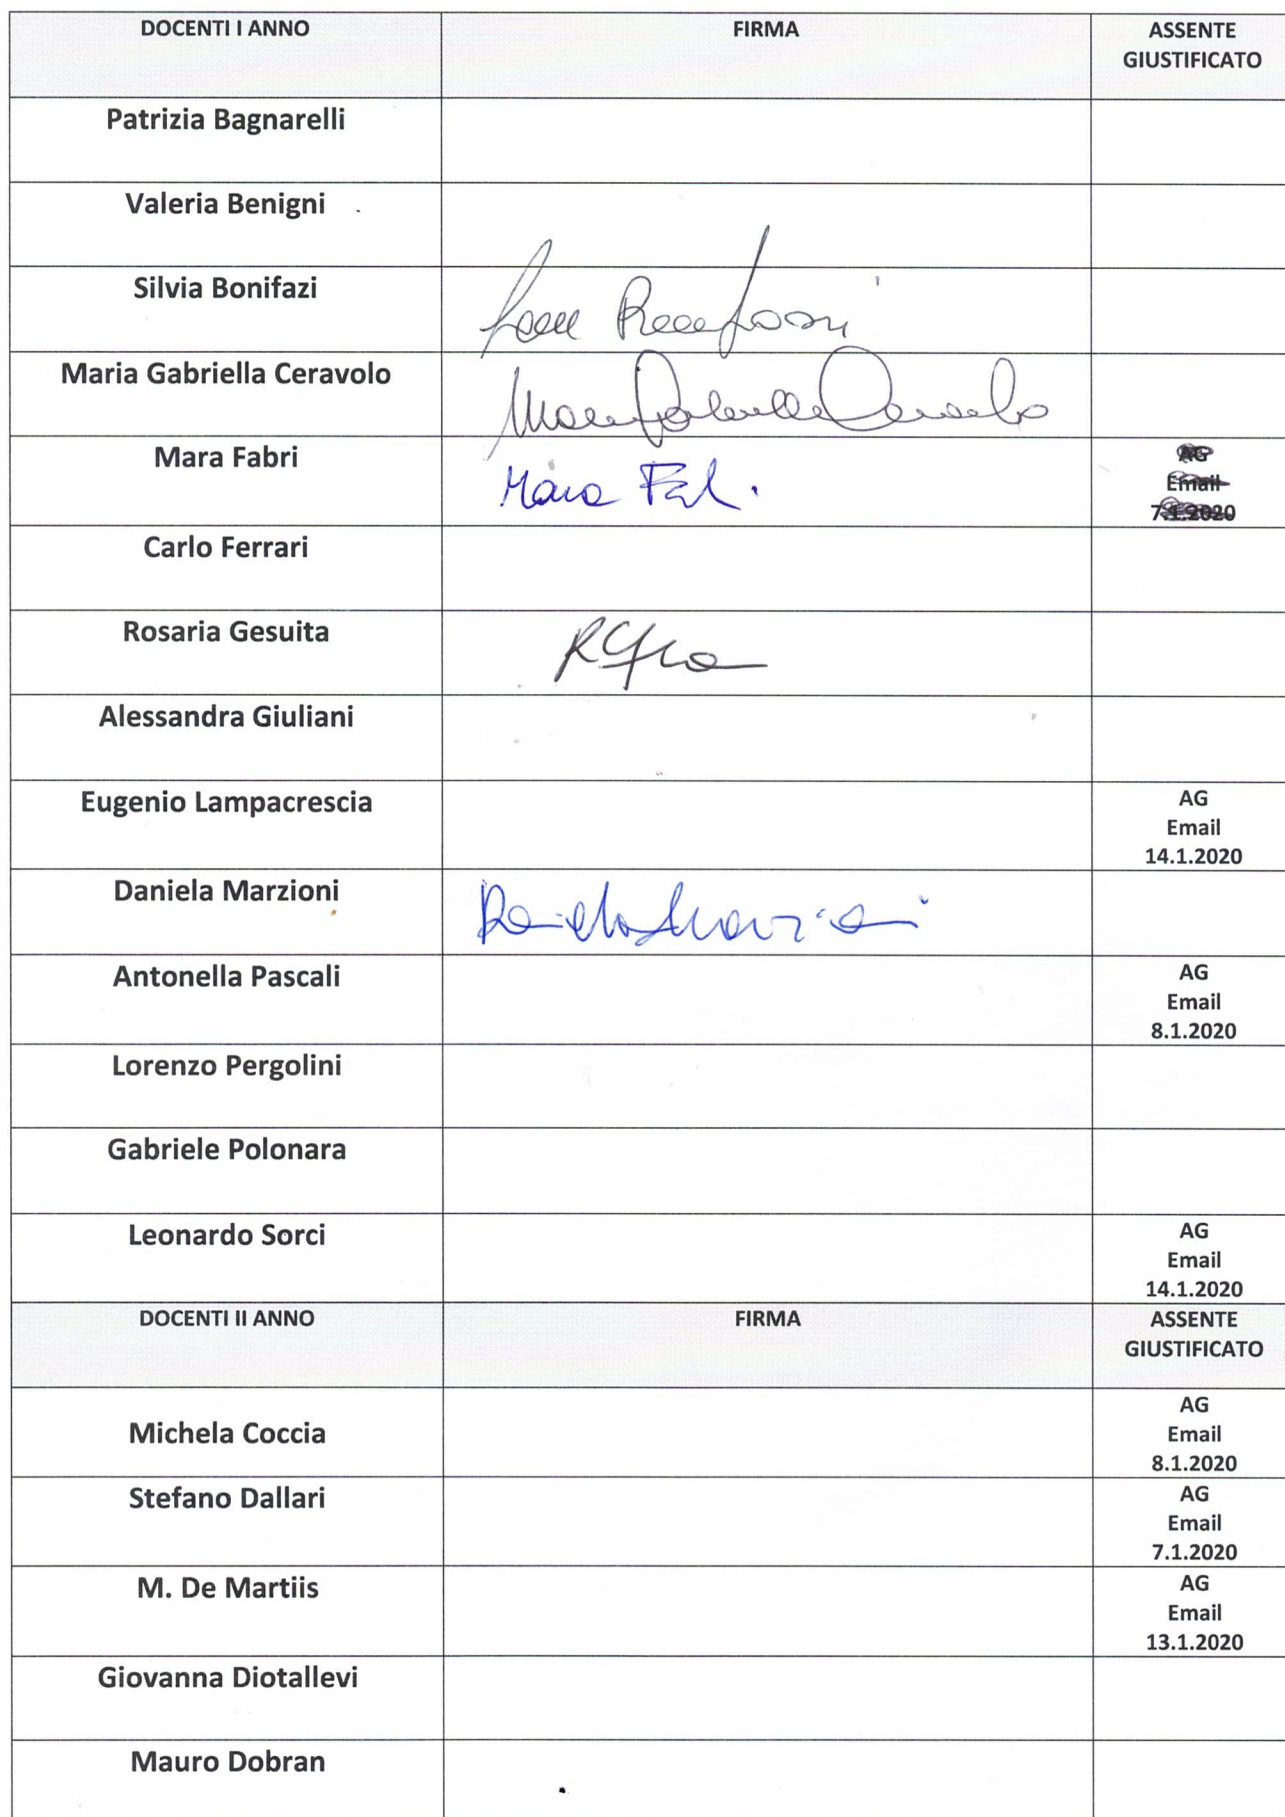 DOCENTI I ANNO FIRMA ASSENTE
GIUSTIFICATO
Patrizia Bagnarelli
Valeria Benigni
Silvia Bonifazi
Maria Gabriella Ceravolo
Mara Fabri Mara AG
Email
7.1.2020
Carlo Ferrari
Rosaria Gesuita
Alessandra Giuliani
Eugenio Lampacrescia AG
Email
14.1.2020
Daniela Marzioni Daniela Marzioni
Antonella Pascali AG
Email
8.1.2020
Lorenzo Pergolini
Gabriele Polonara
Leonardo Sorci AG
Email
14.1.2020
DOCENTI II ANNO FIRMA ASSENTE
GIUSTIFICATO
Michela Coccia AG
Email
8.1.2020
Stefano Dallari AG
Email
7.1.2020
M. De Martiis AG
Email
13.1.2020
Giovanna Diotallevi
Mauro Dobran